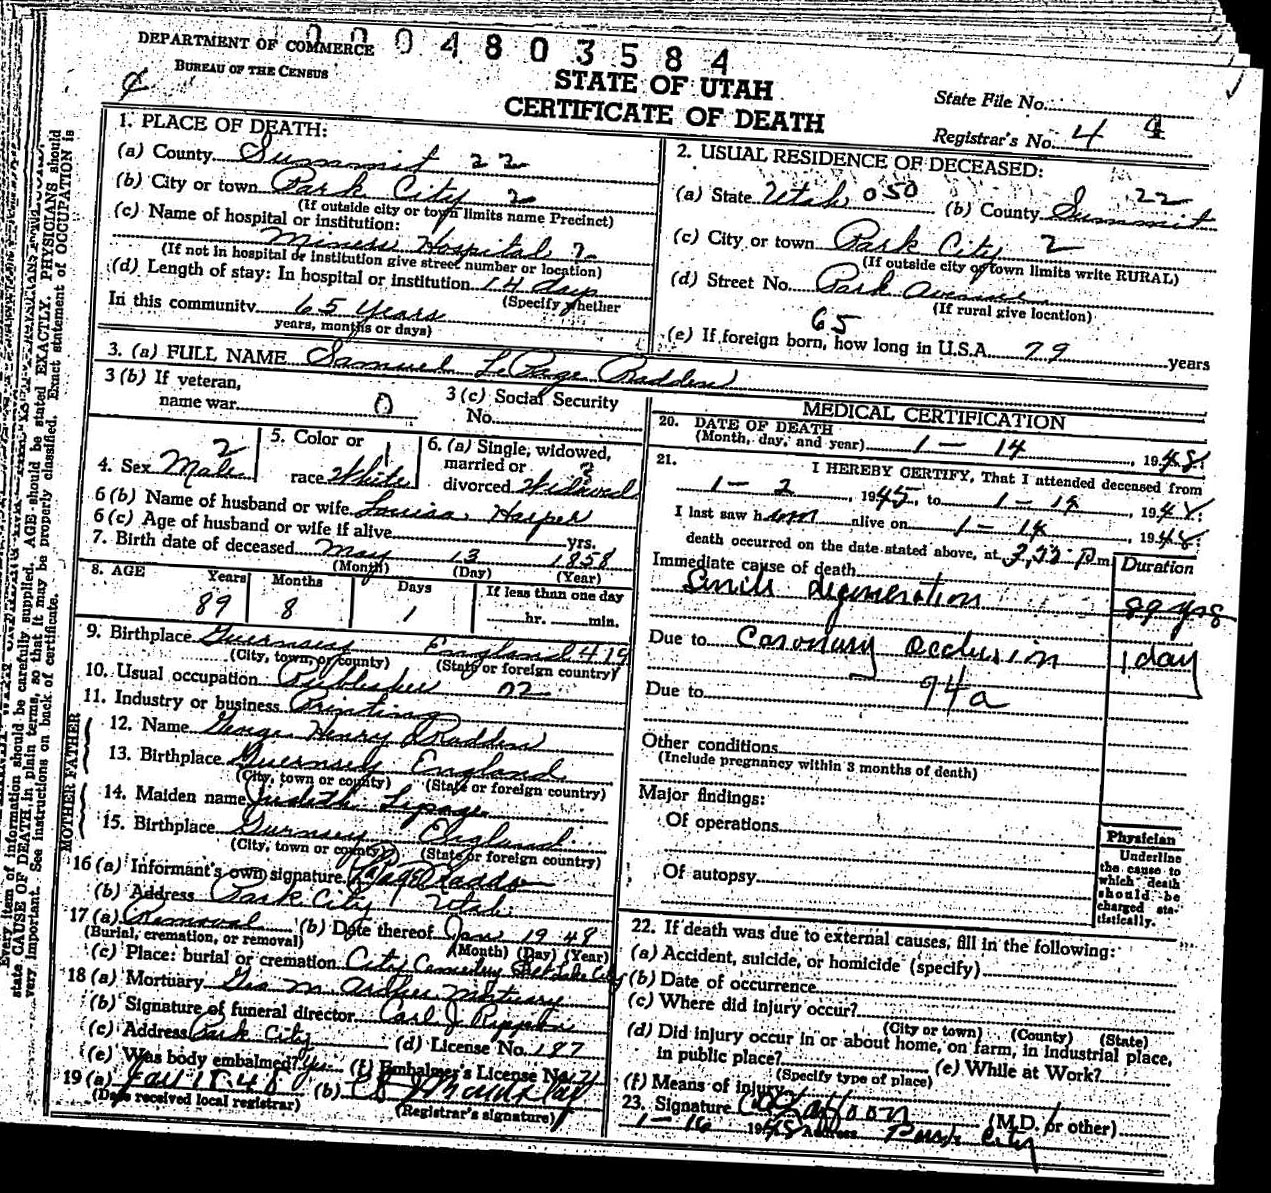 0004803584
DEPARTMENT OF COMMERCE
BUREAU OF THE CENSUS
STATE OF UTAH
CERTIFICATE OF DEATH
State File No.
Registrar's No. 4 4
1. PLACE OF DEATH:
(a) County Summit 22
(b) City or town Park City 2
(If outside city or town limits name Precinct)
(c) Name of hospital or institution:
Miners Hospital 2
(If not in hospital or institution give street number or location)
(d) Length of stay: In hospital or institution 14 days
(Specify whether
In this community 65 Years
years, months or days)
2. USUAL RESIDENCE OF DECEASED:
(a) State Utah 050 (b) County Summit 22
(c) City or town Park City 2
(If outside city or town limits write RURAL)
(d) Street No. Park Avenue
(If rural give location)
65
(e) If foreign born, how long in U.S.A. 79 years
3. (a) FULL NAME Samuel LePage Raddon
3 (b) If veteran,
name war 0
3 (c) Social Security
No.
4. Sex Male 2
5. Color or
race White 1
6. (a) Single, widowed,
married or
divorced Widowed 3
6 (b) Name of husband or wife Louisa Harper
6 (c) Age of husband or wife if alive yrs.
7. Birth date of deceased May 13 1858
(Month) (Day) (Year)
8. AGE Years Months Days If less than one day
89 8 1 hr. min.
9. Birthplace Guernsey England 419
(City, town, or county) (State or foreign country)
10. Usual occupation Publisher 02
11. Industry or business Printing
FATHER
12. Name George Henry Raddon
13. Birthplace Guernsey England
(City, town or county) (State or foreign country)
MOTHER
14. Maiden name Judith Lepage
15. Birthplace Gurnsey England
(City, town or county) (State or foreign country)
16 (a) Informant's own signature Raddon
(b) Address Park City Utah
17 (a) Removal (b) Date thereof Jan 19 48
(Burial, cremation, or removal) (Month) (Day) (Year)
(c) Place: burial or cremation City Cemetery Salt Lake City
18 (a) Mortuary Geo M. Archer Mortuary
(b) Signature of funeral director Carl J
(c) Address Park City (d) License No. 187
(e) Was body embalmed? Yes (f) Embalmer's License No.
19 (a) Jan 48 (b)
(Date received local registrar) (Registrar's signature)
MEDICAL CERTIFICATION
20. DATE OF DEATH
(Month, day, and year) 1 - 14, 1948.
21. I HEREBY CERTIFY, That I attended deceased from
1 - 2, 1945, to 1 - 14, 1948.
I last saw him alive on 1 - 14, 1948.
death occurred on the date stated above, at P m
Immediate cause of death Duration
Senile degeneration 89 yrs
Due to Coronary occlusion 1 day
94a
Due to
Other conditions
(Include pregnancy within 3 months of death)
Major findings:
Of operations
Of autopsy
Physician
Underline
the cause to
which death
should be
charged sta-
tistically.
22. If death was due to external causes, fill in the following:
(a) Accident, suicide, or homicide (specify)
(b) Date of occurrence
(c) Where did injury occur?
(City or town) (County) (State)
(d) Did injury occur in or about home, on farm, in industrial place,
in public place? (e) While at Work?
(Specify type of place)
(f) Means of injury
23. Signature (M.D. or other)
1 - 16 1948 Address Park City
Every item of information should be carefully supplied. AGE should be stated EXACTLY. PHYSICIANS should
state CAUSE OF DEATH in plain terms, so that it may be properly classified. Exact statement of OCCUPATION is
very important. See instructions on back of certificate.